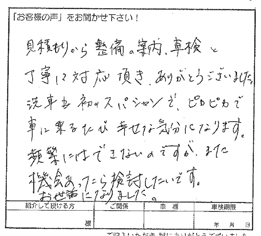 「お客様の声」をお聞かせ下さい！
見積もりから整備の案内、車検と
丁寧に対応頂き、ありがとうございました。
洗車も初のスペシャンで、ピカピカで
車に乗るたび幸せな気分になります。
頻繁にはできないのですが、また
機会あったら検討したいです。
お世話になりました。
紹介して頂ける方 ご関係 車種 車検期限
様 年 月 日